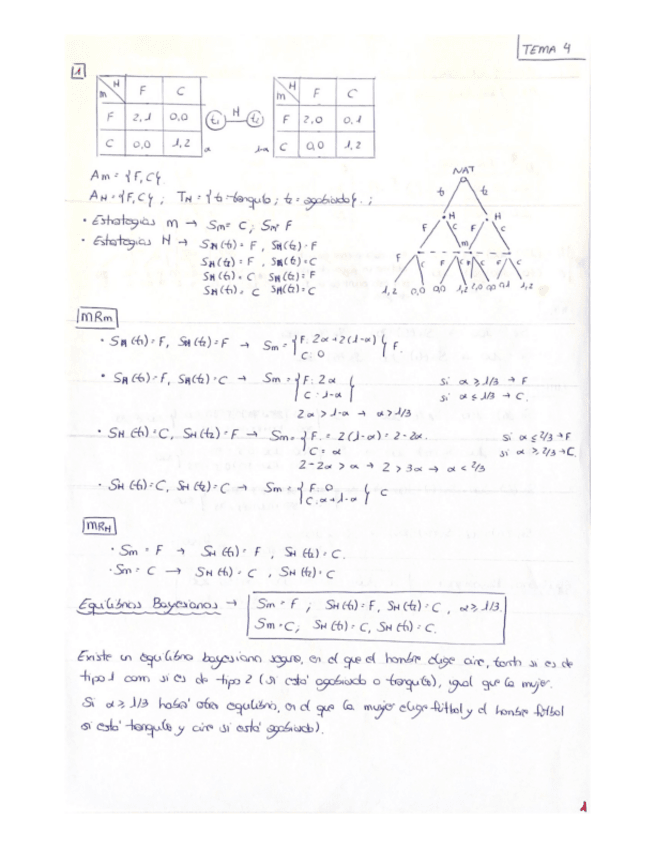 TEMA 4
1
H F C
m
F 2,1 0,0
C 0,0 1,2
α
t1 H t2
H F C
m
F 2,0 0,1
C 0,0 1,2
1-α
Am = {F,C}
AH = {F,C} ; TH = {t1 = tranquilo ; t2 = agobiado} . ;
• Estrategias m → Sm = C ; Sm = F
• Estrategias H → SH(t1) = F , SH(t2) = F
SH(t1) = F , SH(t2) = C
SH(t1) = C , SH(t2) = F
SH(t1) = C SH(t2) = C
NAT
t1 t2
H H
F C F C
m
F C F C F C F C
1,2 0,0 0,0 1,2 2,0 0,0 0,1 1,2
MRm
• SH(t1) = F, SH(t2) = F → Sm = { F: 2α+2(1-α) } F.
C: 0
• SH(t1) = F, SH(t2) = C → Sm = { F: 2α si α ≥ 1/3 → F
C: 1-α si α ≤ 1/3 → C.
2α > 1-α → α > 1/3
• SH(t1) = C, SH(t2) = F → Sm = { F. = 2(1-α) = 2-2α. si α ≤ 2/3 → F
C = α si α ≥ 2/3 → C.
2-2α > α → 2 > 3α → α < 2/3
• SH(t1) = C, SH(t2) = C → Sm = { F: 0 } C
C: α+1-α
MRH
• Sm = F → SH(t1) = F , SH(t2) = C.
• Sm = C → SH(t1) = C , SH(t2) = C
Equilibrios Bayesianos → Sm = F ; SH(t1) = F, SH(t2) = C , α ≥ 1/3.
Sm = C; SH(t1) = C, SH(t1) = C.
Existe un equilibrio bayesiano seguro, en el que el hombre elige cine, tanto si es de
tipo 1 como si es de tipo 2 (si está agobiado o tranquilo), igual que la mujer.
Si α ≥ 1/3 habrá otro equilibrio, en el que la mujer elige fútbol y el hombre fútbol
si está tranquilo y cine si está agobiado).
1